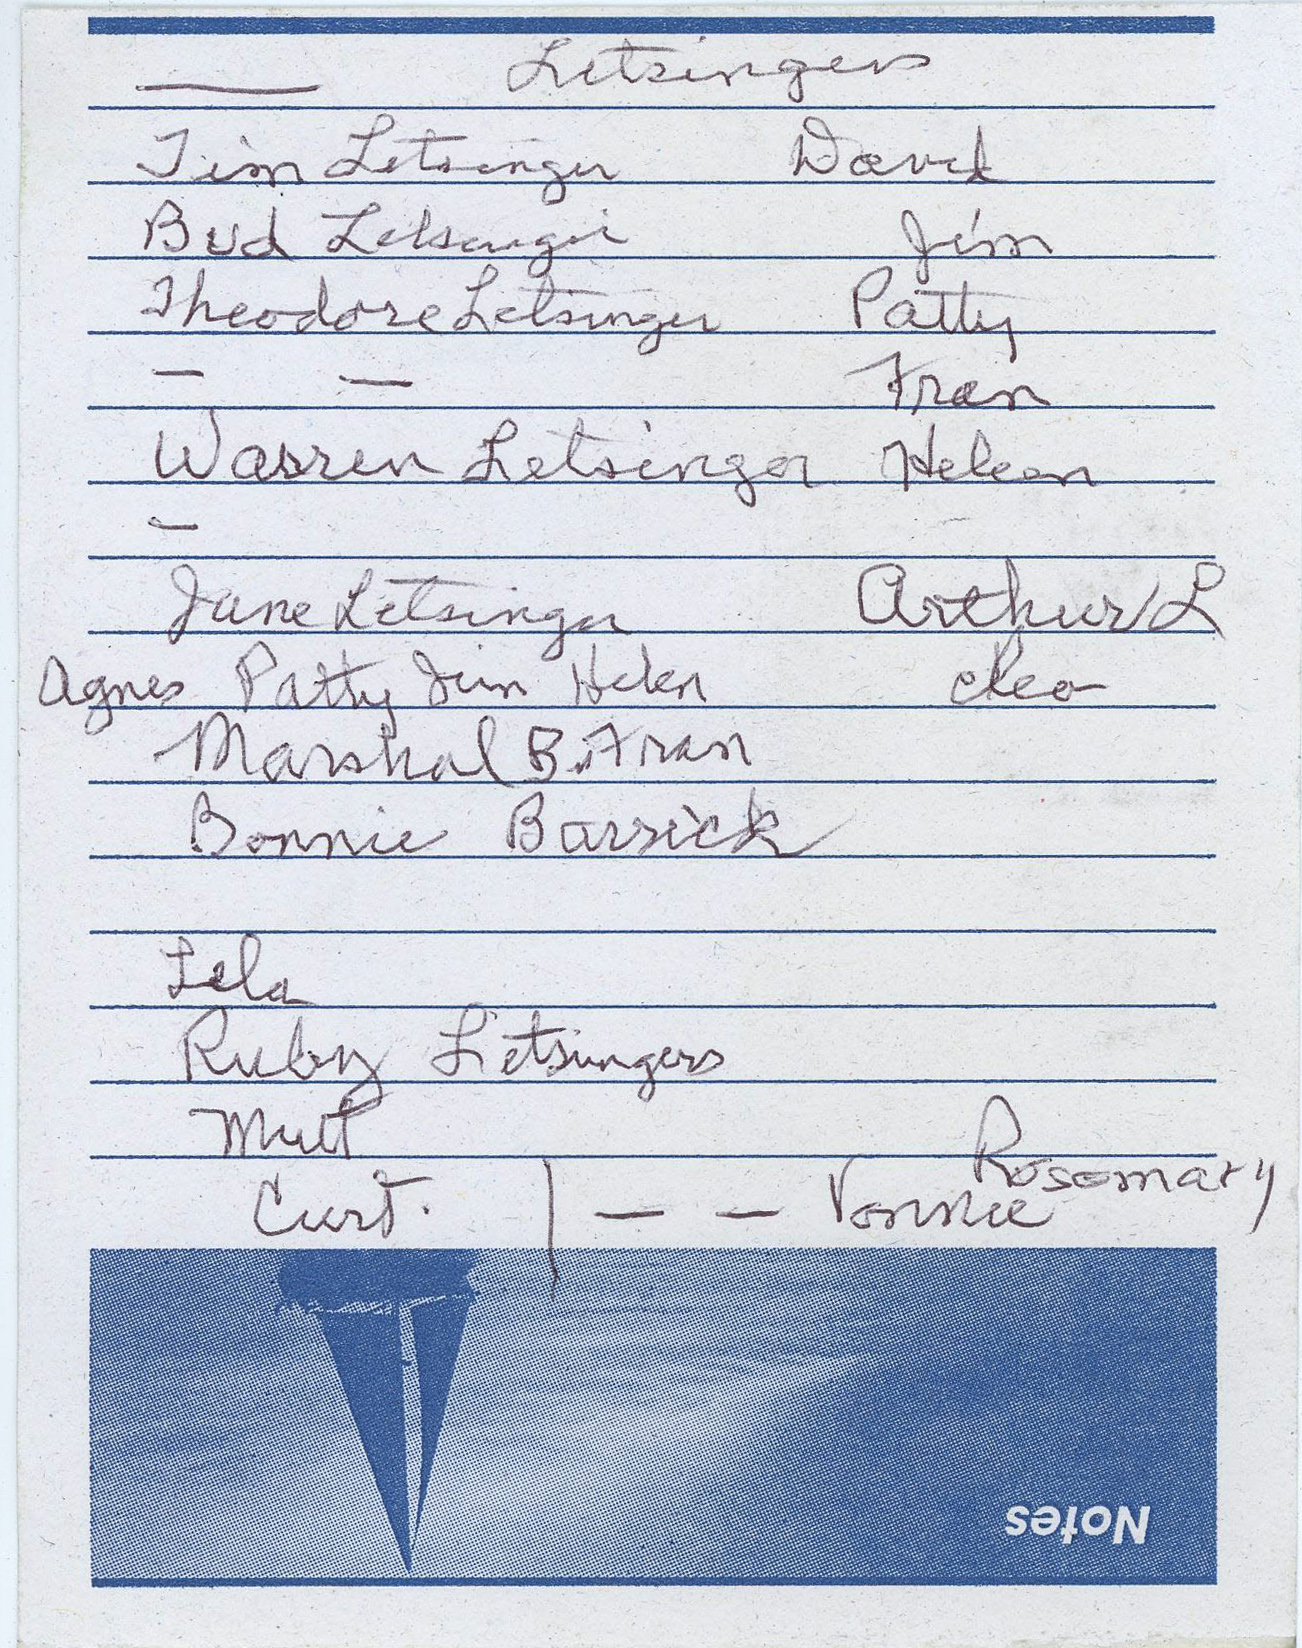 Letsingers
Tim Letsinger David
Bud Letsinger Jim
Theodore Letsinger Patty
— — Fran
Warren Letsinger Heleen
—
June Letsinger Arthur L
Agnes Patty Jim Helen Cleo
Marshal B. Fran
Bonnie Barrick
Lela
Ruby Letsingers
Mutt
Rosomary
Curt. | — — Vonnie
Notes